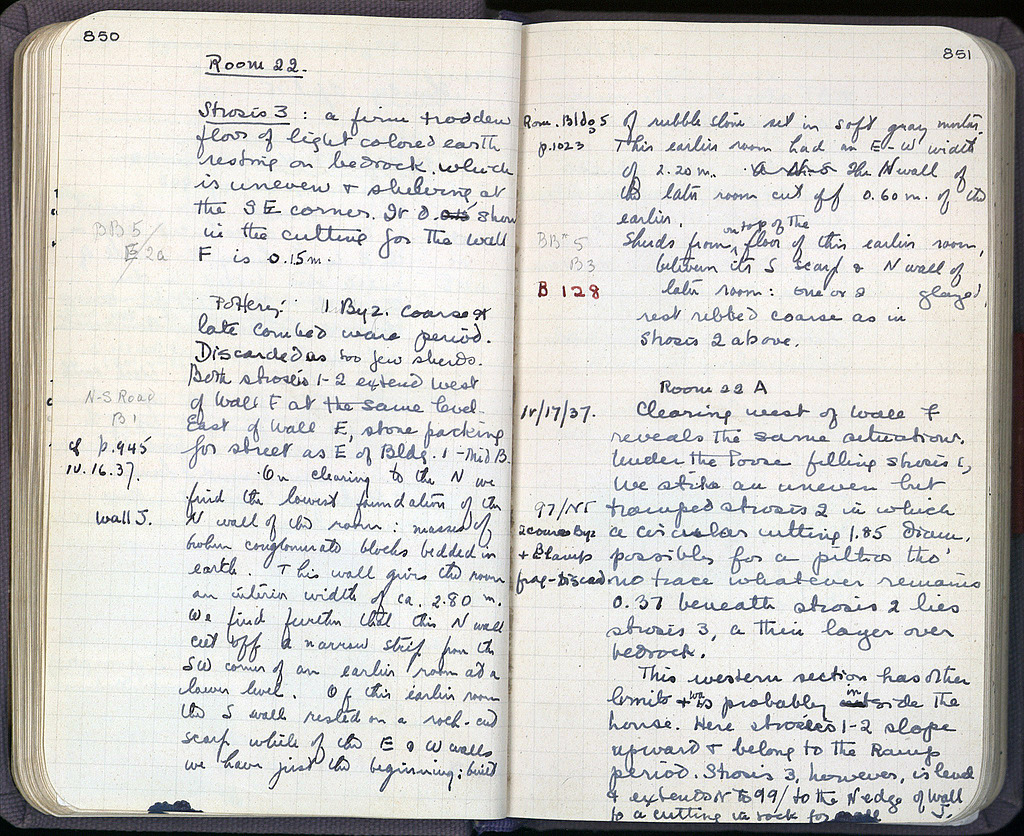 850
Room 22.
Strosis 3 : a firm trodden
floor of light colored earth
resting on bedrock which
is uneven + shelving at
the SE corner. It 0. show
in the cutting for the wall
BB 5
E/2a
F is 0.15 m.
Pottery: 1 Byz. coarse
late combed ware period.
Discarded as too few sherds.
Both strosis 1-2 extend west
N-S Road
B 1
of Wall F at the same level.
East of Wall E, stone packing
cf p.945
for street as E of Bldg. 1 - Mid B.
IV.16.37.
On clearing to the N we
find the lowest foundation of the
Wall J.
N wall of the room : masses of
broken conglomerate blocks bedded in
earth. This wall gives the room
an interior width of ca. 2.80 m.
We find further that this N wall
cut off a narrow strip from the
SW corner of an earlier room at a
lower level. Of this earlier room
the S wall rested on a rock-cut
scarf, while of the E & W walls
we have just the beginning; built
851
Rom. Bldg 5
p.1023
of rubble stone set in soft gray mortar.
This earlier room had an E-W width
of 2.20 m. The N wall of
the later room cut off 0.60 m. of the
earlier.
BB" 5
B3
Sherds from on top of the floor of this earlier room,
between its S scarf & N wall of
B 128
later room: one or 2 glazed,
rest ribbed coarse as in
Strosis 2 above.
Room 22 A
IV/17/37.
Clearing west of Wall F
reveals the same situation.
Under the loose filling strosis 1,
we strike an uneven but
97/
tramped strosis 2 in which
2 coarse Byz
+ B lamp
frag - Discard
a circular cutting 1.85 diam.
possibly for a pithos tho'
no trace whatever remains
0.37 beneath strosis 2 lies
strosis 3, a thin layer over
bedrock.
This western section has other
limits + was probably inside the
house. Here stroseis 1-2 slope
upward + belong to the Ramp
period. Strosis 3, however, is level
+ extends N to 99/ to the N edge of Wall
to a cutting in rock for wall J.